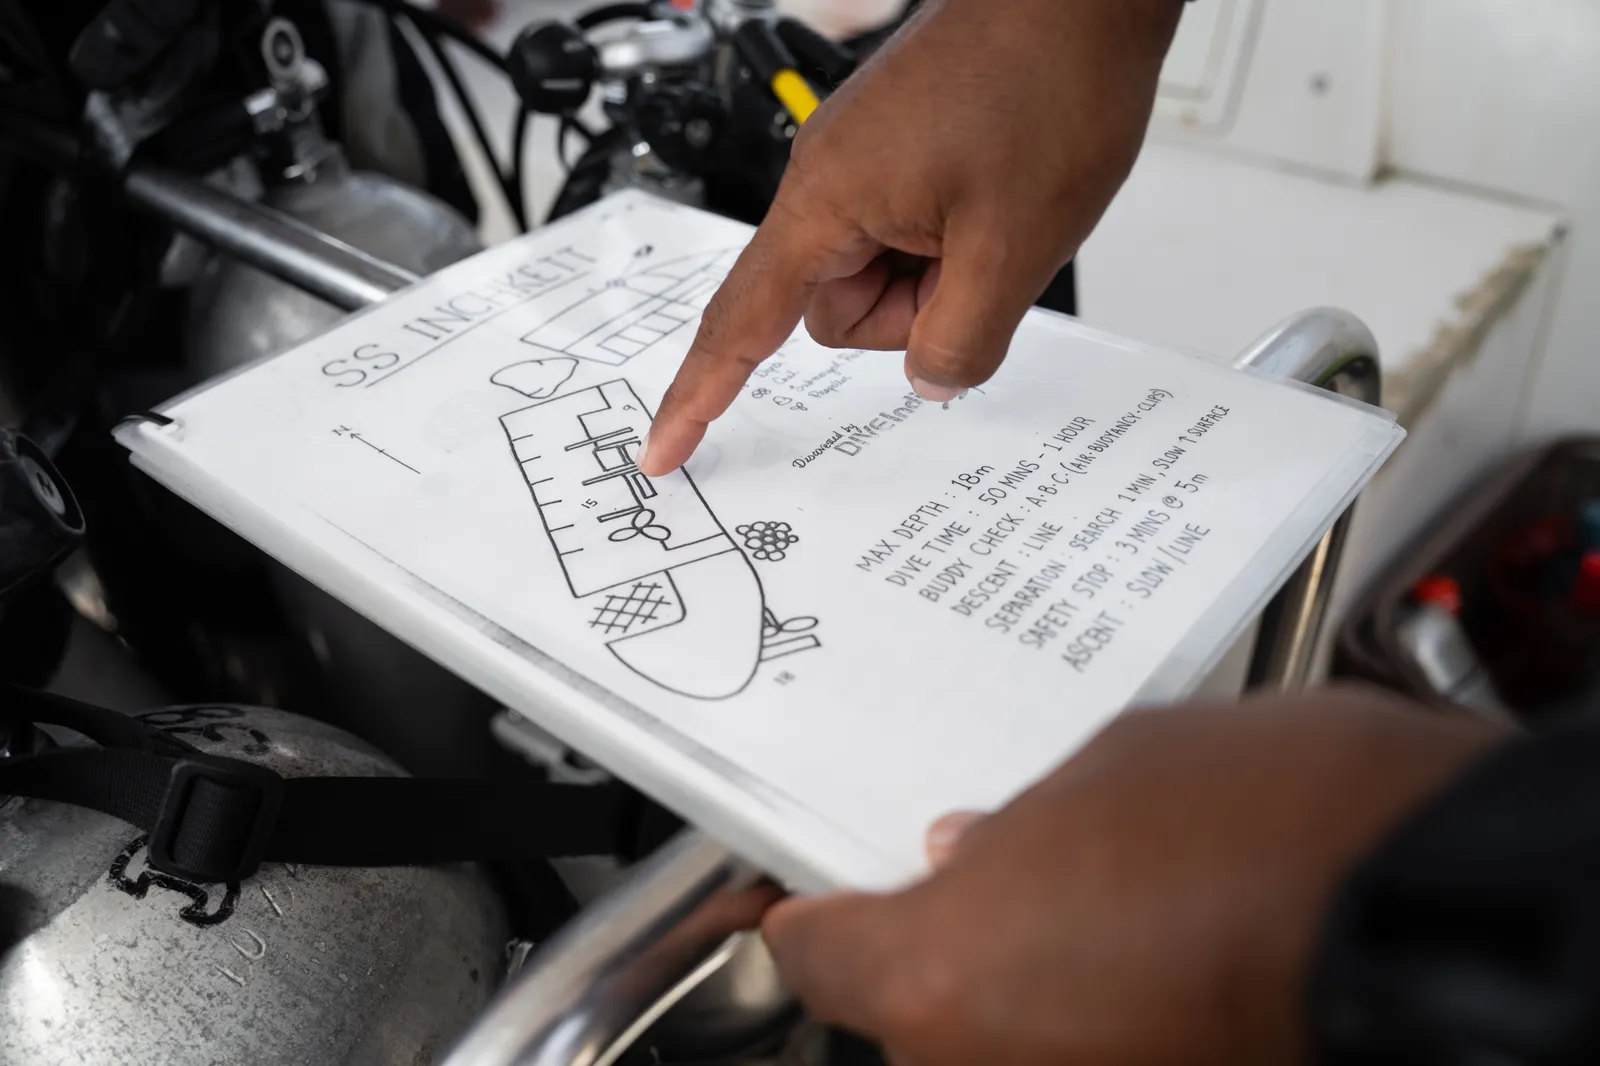 SS INCHKETT
N
9
15
18
Depth
Coal
Submerged
Propeller
Discovered by
DIVEIndi
MAX DEPTH : 18m
DIVE TIME : 50 MINS - 1 HOUR
BUDDY CHECK : A·B·C·(AIR·BUOYANCY·CLIPS)
DESCENT : LINE
SEPARATION : SEARCH 1 MIN, SLOW ↑ SURFACE
SAFETY STOP : 3 MINS @ 5m
ASCENT : SLOW/LINE